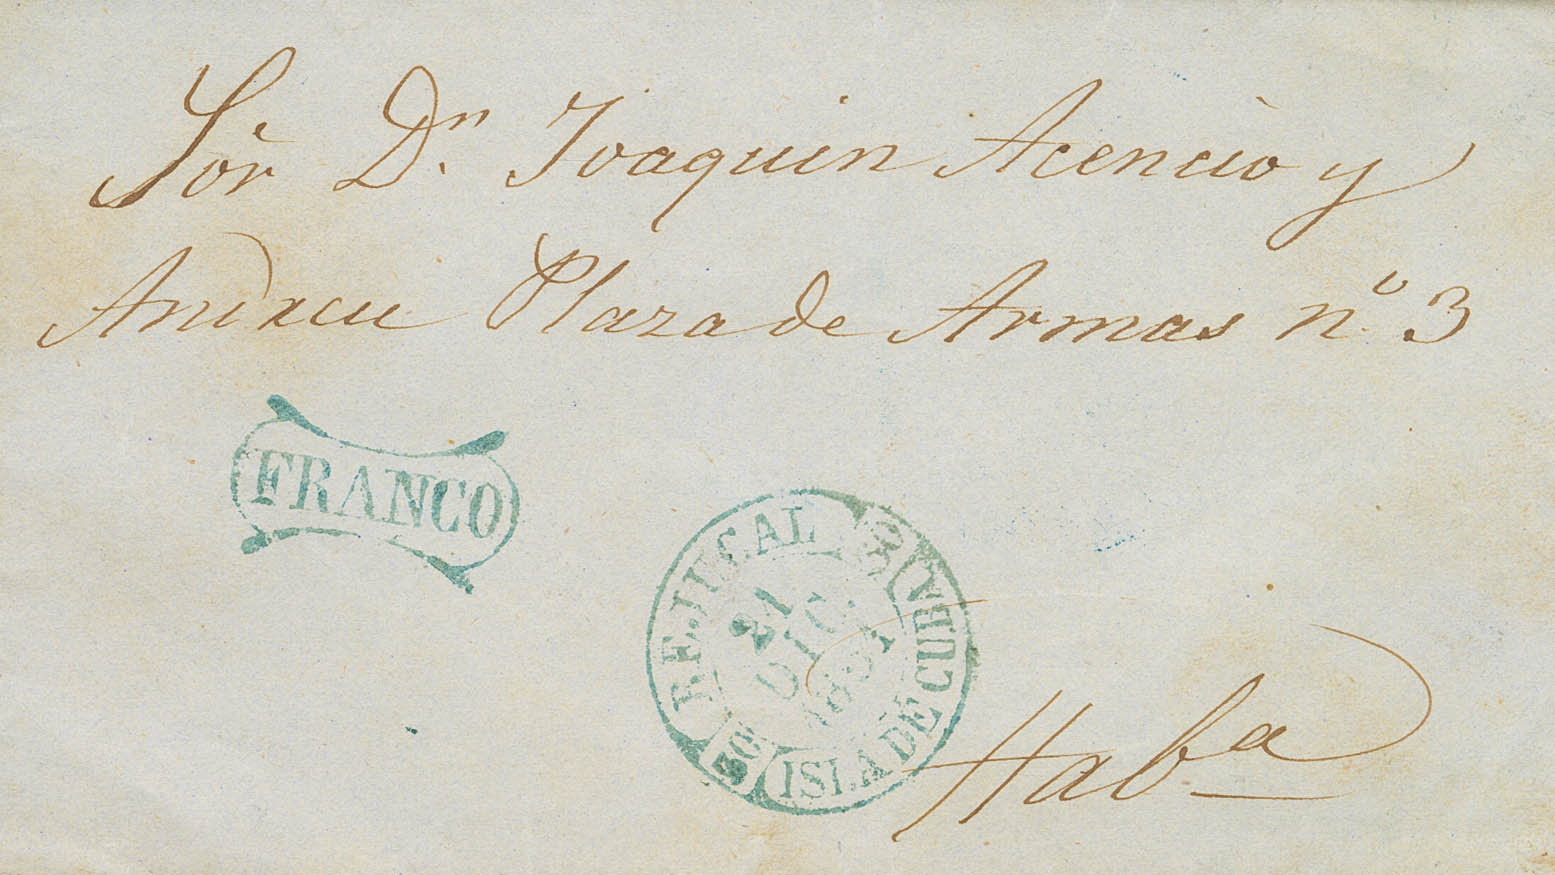 Sōr Dn. Joaquin Acencio y
Plaza de Armas nº. 3
FRANCO
BEJUCAL
21
DIC
1851
ISLA DE CUBA
Haba